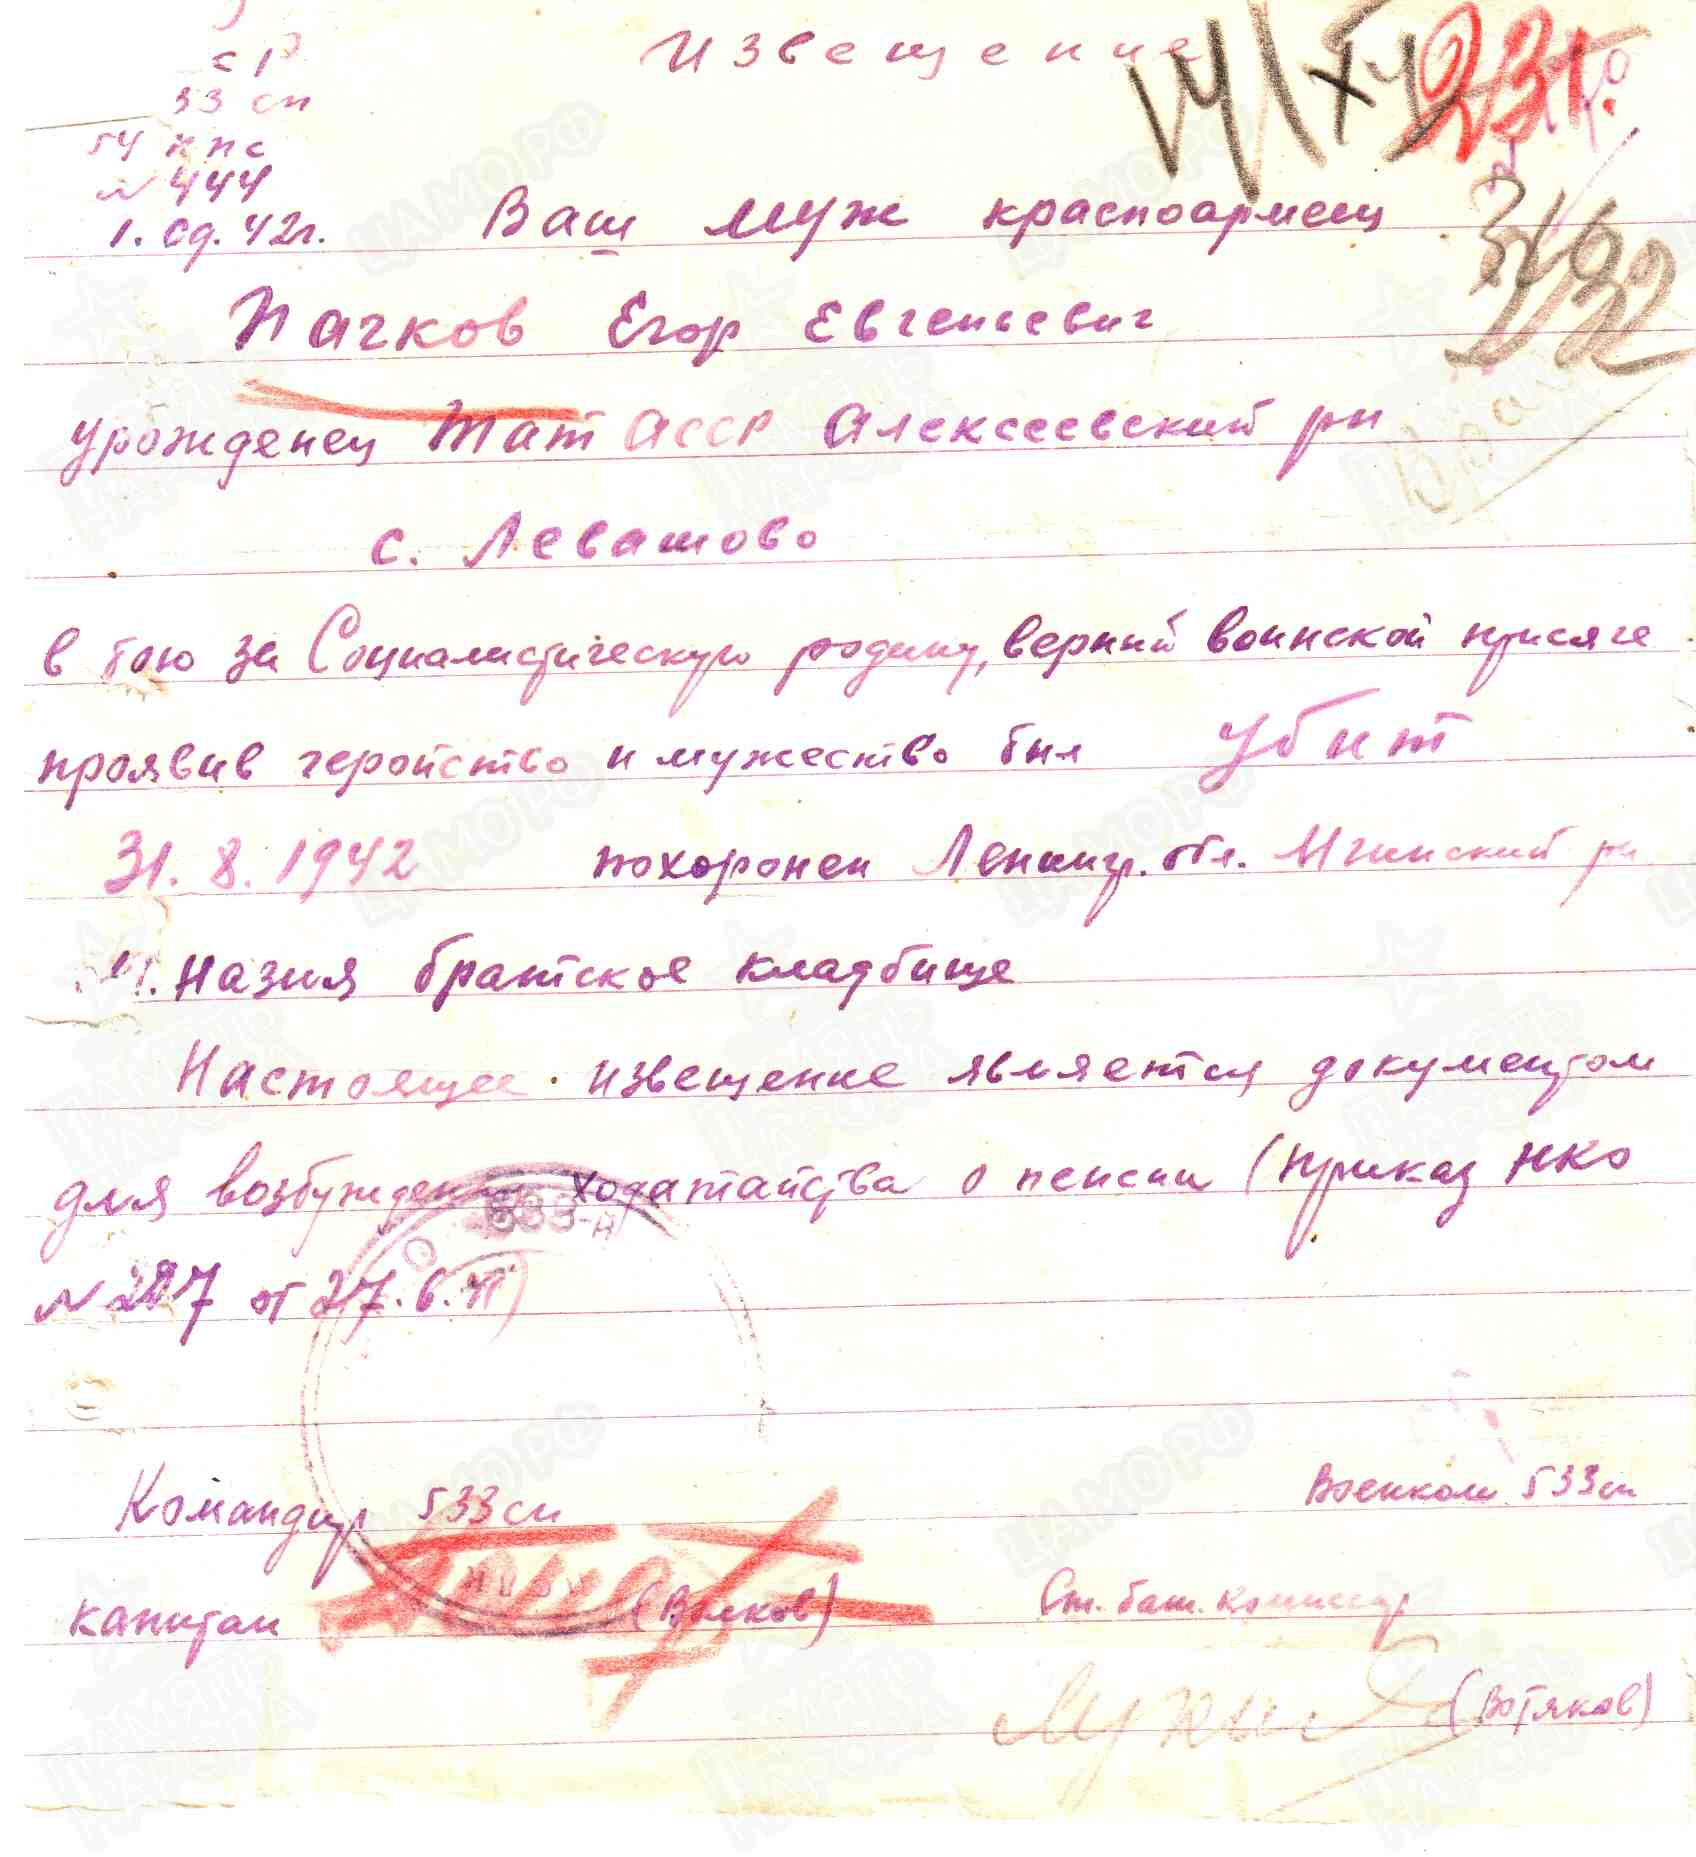 Извещение
СР
33 сп
54 ппс
N 444
1. 09. 42г.
Ваш муж красноармеец
Пачков Егор Евгеньевич
урожденец Тат АССР Алексеевский рн
с. Левашово
в бою за Социалистическую родину, верный воинской присяге
проявив геройство и мужество был убит
31. 8. 1942 похоронен Ленингр. обл. Мгинский рн
Назия братское кладбище
Настоящее извещение является документом
для возбуждения ходатайства о пенсии (приказ НКО
N 227 от 27. 6. 41)
Командир 533 сп
Военком 533 сп
капитан (Волков)
Ст. бат. комиссар
(Вотяков)